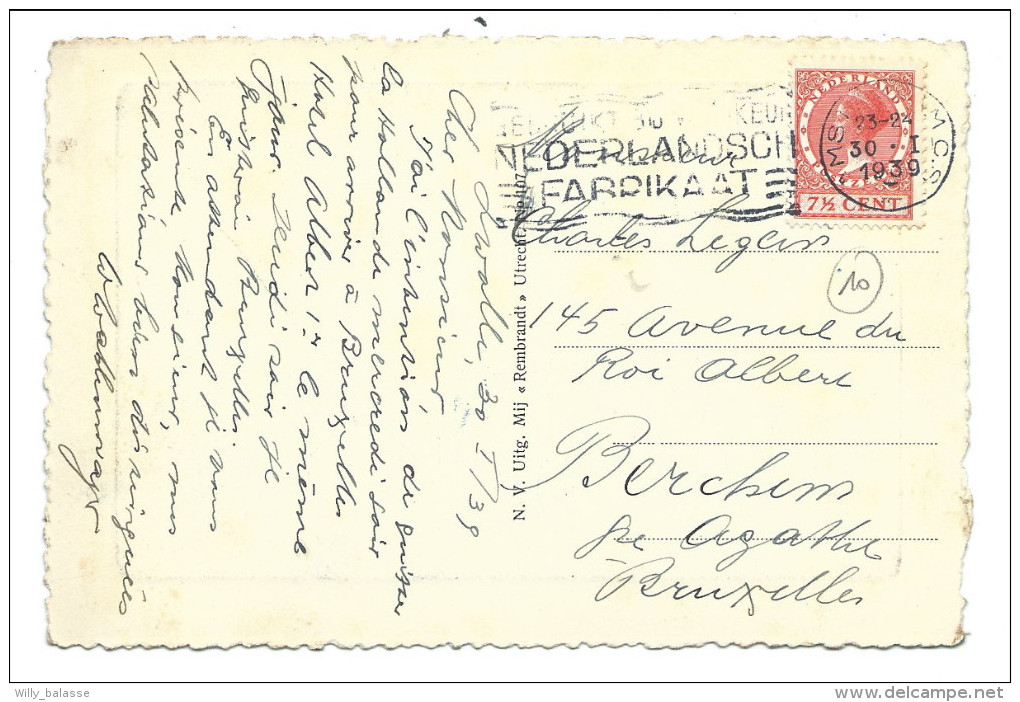 Zwolle, 30 I/39
Cher Monsieur
J'ai l'intention de quitter
la Hollande mercredi soir
pour arriver à Bruxelles
Hotel Albert 1er le même
jour. Jeudi soir je
quitterai Bruxelles.
En attendant je vous
présente Monsieur, mes
salutations bien distinguées
N. V. Uitg. Mij « Rembrandt » Utrecht
NEDERLANDSCH
FABRIKAAT
NEDERLAND
7½ CENT
23-24
30 . I
1939
Monsieur
Charles Legein
145 Avenue du
Roi Albert
Berchem
Ste Agathe
Bruxelles
10
Willy_balasse
delcampe.net